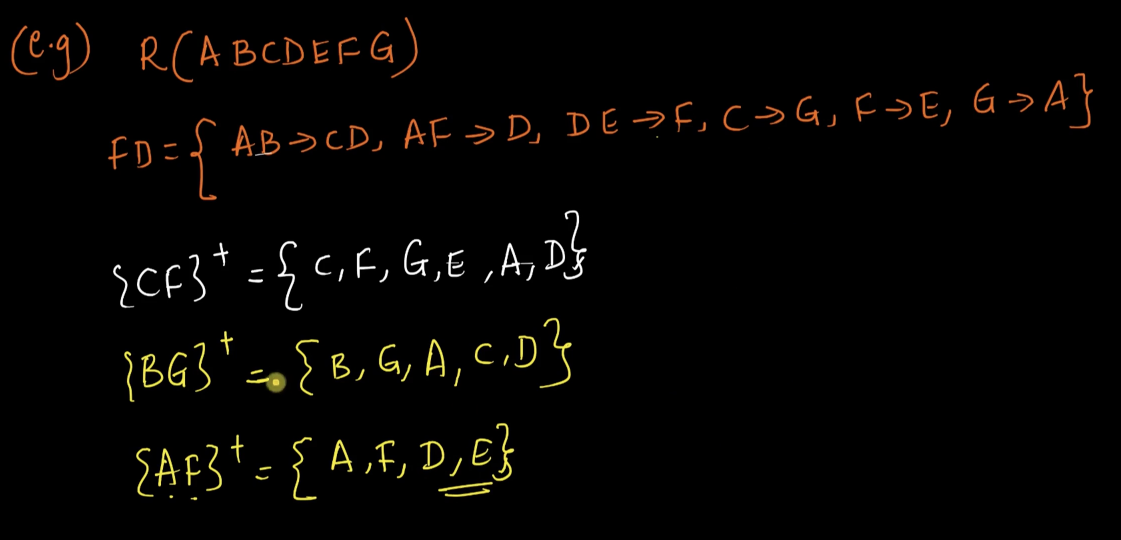 (e.g) R(ABCDEFG)
FD = { AB → CD, AF → D, DE → F, C → G, F → E, G → A}
{CF}⁺ = { C, F, G, E, A, D}
{BG}⁺ = { B, G, A, C, D}
{AF}⁺ = { A, F, D, E}